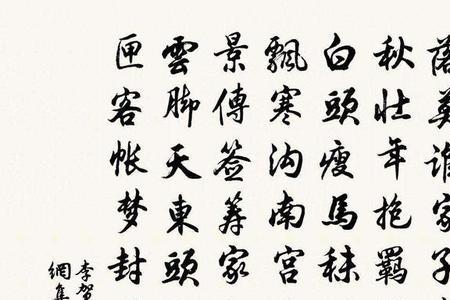 落莫谁家子
秋壮年抱羈
白頭瘦馬秣
飄寒沟南宫
景傳签筹家
雲脚天東頭
匣客帐梦封
李贺
網集